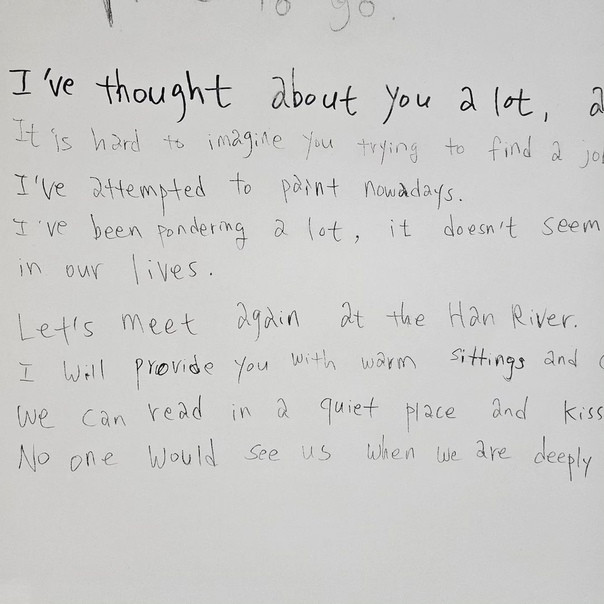 to go.
I've thought about you a lot,
It is hard to imagine you trying to find a
I've attempted to paint nowadays.
I've been pondering a lot, it doesn't seem
in our lives.
Let's meet again at the Han River.
I will provide you with warm sittings and
We can read in a quiet place and kiss
No one would see us when we are deeply